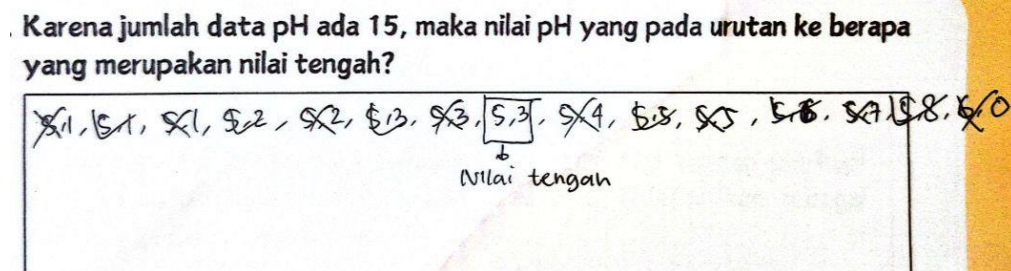 Karena jumlah data pH ada 15, maka nilai pH yang pada urutan ke berapa
yang merupakan nilai tengah?
5,1, 5,1, 5,1, 5,2, 5,2, 5,3, 5,3, 5,3, 5,4, 5,5, 5,5, 5,6, 5,7, 5,8, 6,0
Nilai tengah